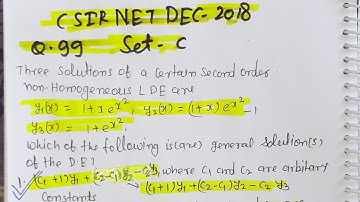 CSIR NET DEC-2018
Q.99 Set-C
Three Solutions of a Certain Second order
non-Homogeneous LDE are
y₁(x) = 1+xe^x², y₂(x) = (1+x)e^x² -1
y₃(x) = 1+e^x².
Which of the following is(are) general solution(s)
of the D.E?
1. (C₁+1)y₁+(C₂-C₁)y₂-C₂y₃, where C₁ and C₂ are arbitary
Constants → (C₁+1)y₁+(C₂-C₁)y₂-C₂y₃